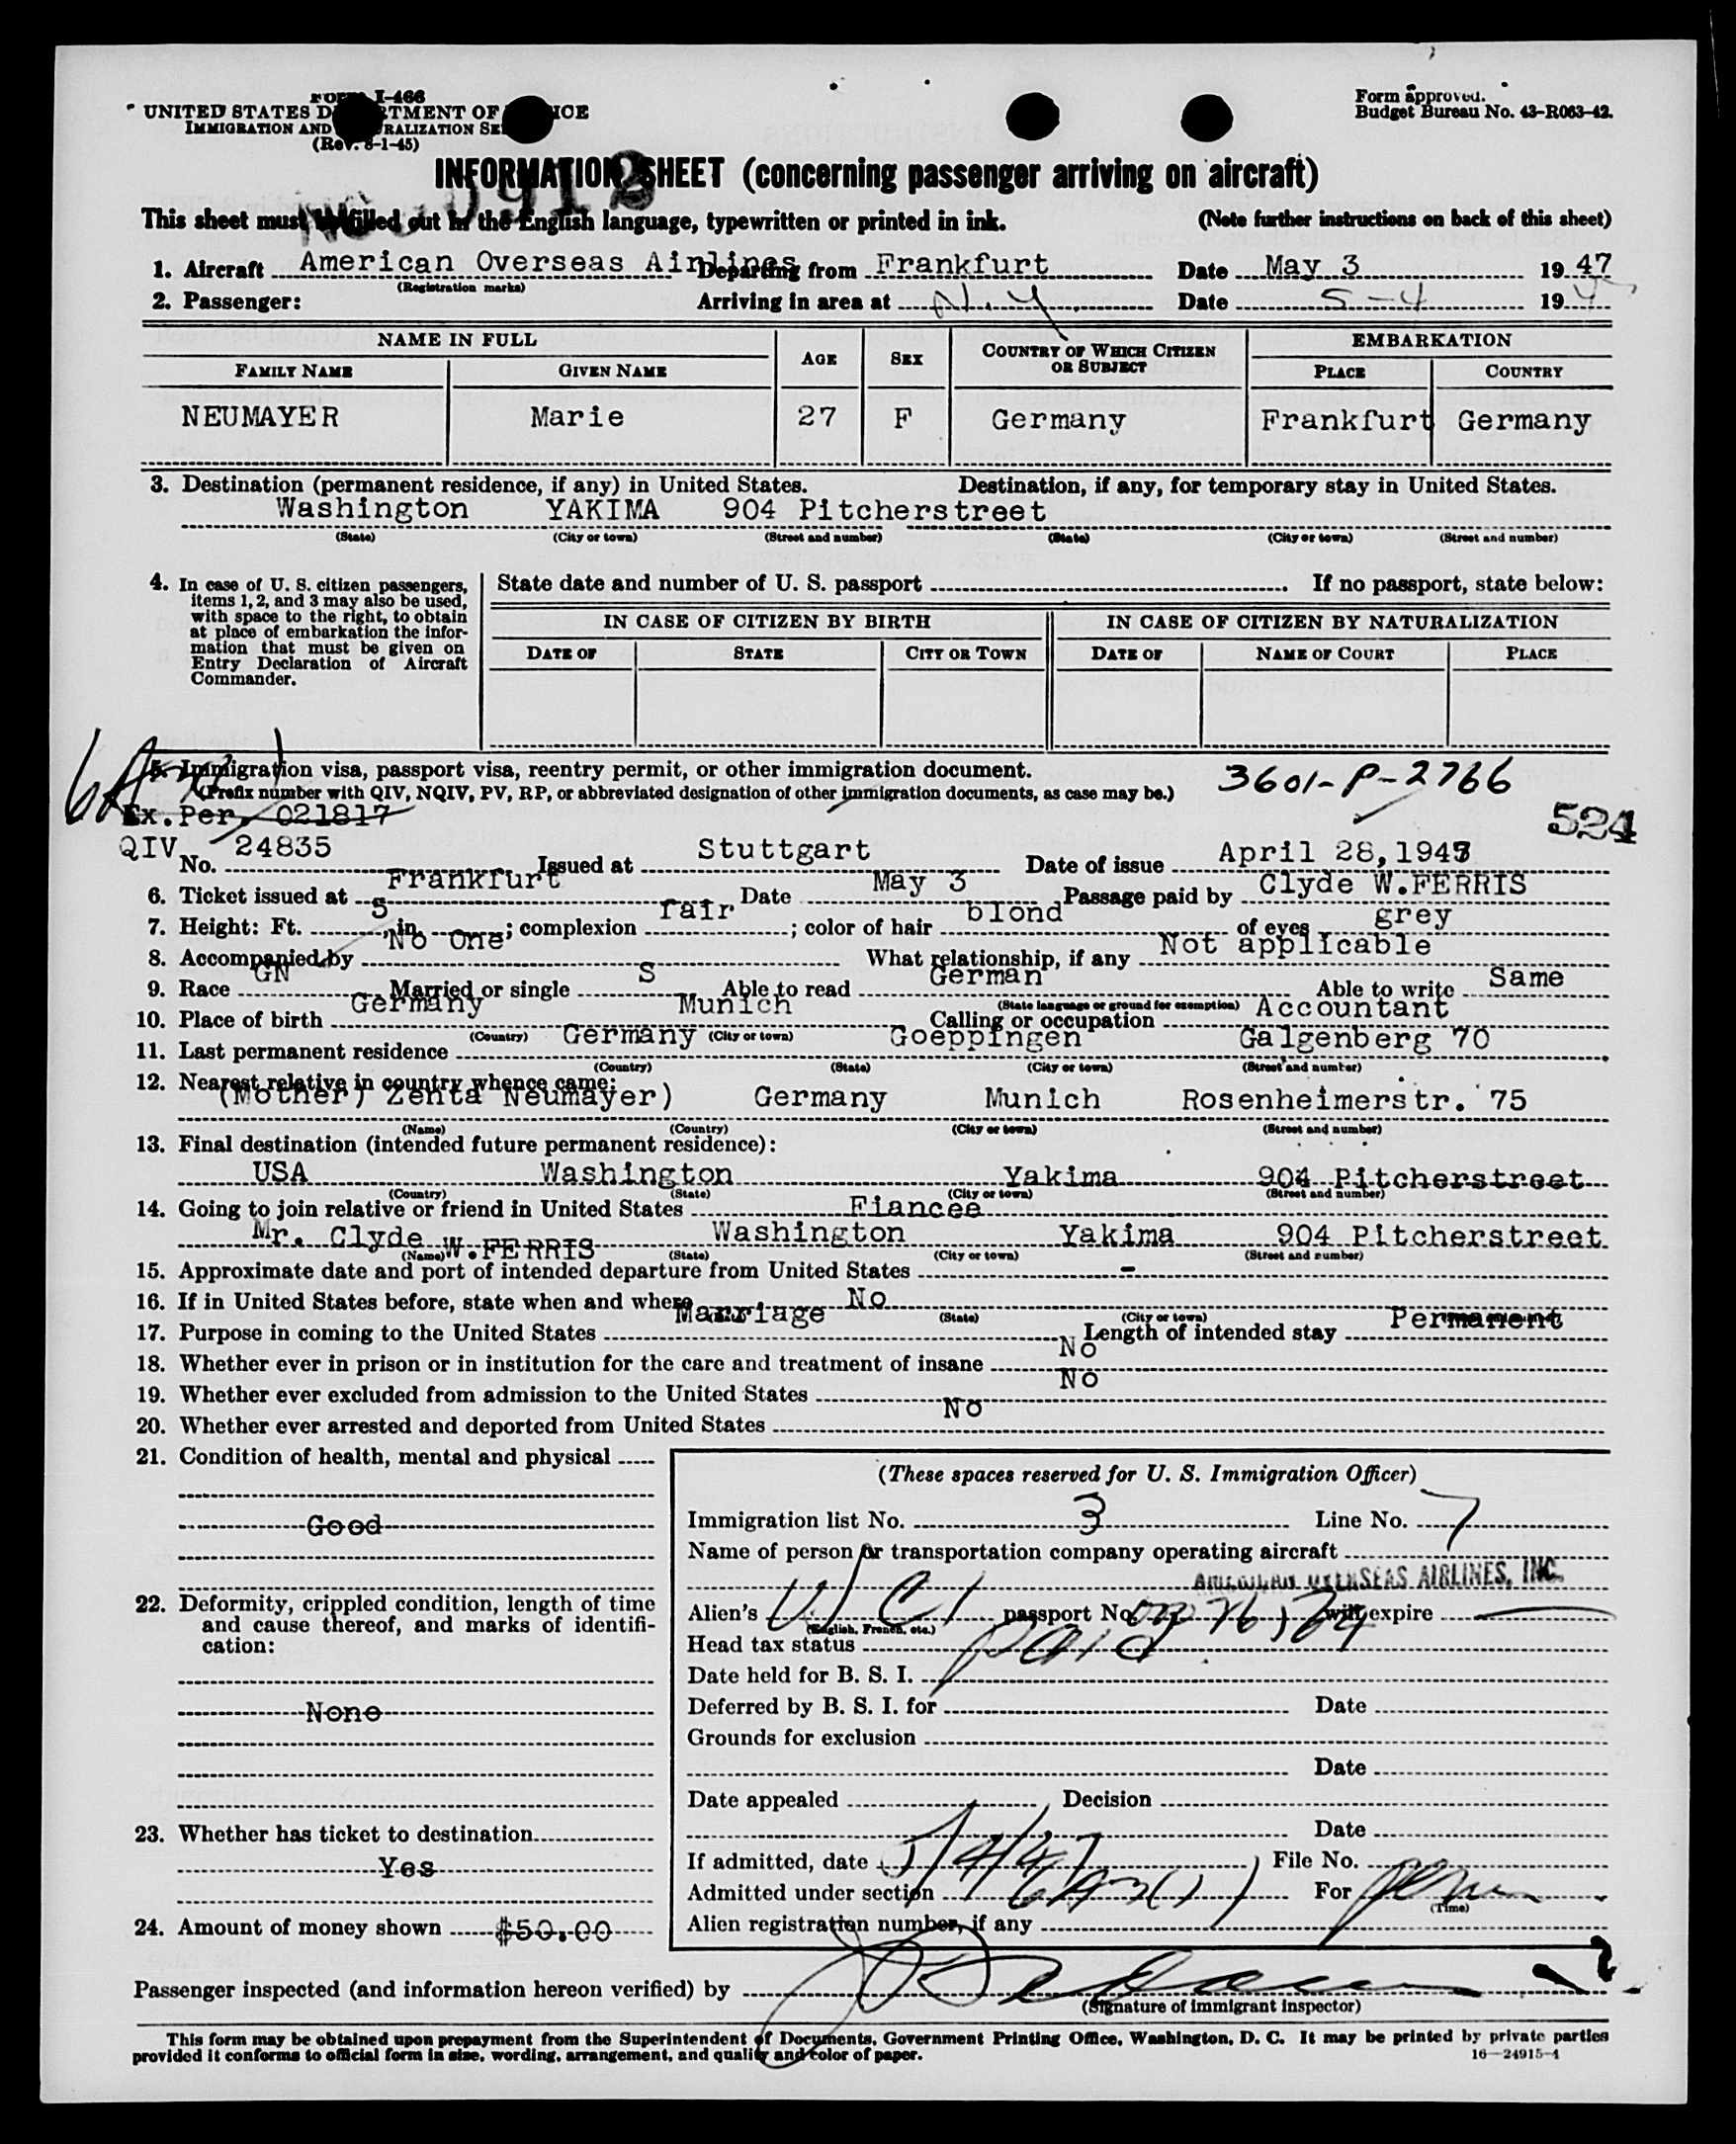 FORM I-466
UNITED STATES D RTMENT OF ICE
IMMIGRATION AND RALIZATION SE
(Rev. 8-1-45)
Form approved.
Budget Bureau No. 43-R063-42.
INFORMATION SHEET (concerning passenger arriving on aircraft)
This sheet must be filled out in the English language, typewritten or printed in ink. (Note further instructions on back of this sheet)
1. Aircraft American Overseas Airlines Departing from Frankfurt Date May 3 19 47
(Registration marks)
2. Passenger: Arriving in area at N.Y. Date 5-4 19 47
NAME IN FULL AGE SEX COUNTRY OF WHICH CITIZEN OR SUBJECT EMBARKATION
FAMILY NAME GIVEN NAME PLACE COUNTRY
NEUMAYER Marie 27 F Germany Frankfurt Germany
3. Destination (permanent residence, if any) in United States. Destination, if any, for temporary stay in United States.
Washington YAKIMA 904 Pitcherstreet
(State) (City or town) (Street and number) (State) (City or town) (Street and number)
4. In case of U. S. citizen passengers, items 1, 2, and 3 may also be used, with space to the right, to obtain at place of embarkation the information that must be given on Entry Declaration of Aircraft Commander.
State date and number of U. S. passport If no passport, state below:
IN CASE OF CITIZEN BY BIRTH IN CASE OF CITIZEN BY NATURALIZATION
DATE OF STATE CITY OR TOWN DATE OF NAME OF COURT PLACE
5. Immigration visa, passport visa, reentry permit, or other immigration document.
(Prefix number with QIV, NQIV, PV, RP, or abbreviated designation of other immigration documents, as case may be.)
3601-P-2766
Ex.Per. 021817
524
QIV No. 24835 Issued at Stuttgart Date of issue April 28,1947
6. Ticket issued at Frankfurt Date May 3 Passage paid by Clyde W.FERRIS
7. Height: Ft. 5, in. ; complexion fair ; color of hair blond of eyes grey
8. Accompanied by No One What relationship, if any Not applicable
9. Race GN Married or single S Able to read German Able to write Same
(State language or ground for exemption)
10. Place of birth Germany Munich Calling or occupation Accountant
(Country) (City or town)
11. Last permanent residence Germany Goeppingen Galgenberg 70
(Country) (State) (City or town) (Street and number)
12. Nearest relative in country whence came:
(Mother) Zenta Neumayer) Germany Munich Rosenheimerstr. 75
(Name) (Country) (City or town) (Street and number)
13. Final destination (intended future permanent residence):
USA Washington Yakima 904 Pitcherstreet
(Country) (State) (City or town) (Street and number)
14. Going to join relative or friend in United States Fiancee
Mr. Clyde W.FERRIS Washington Yakima 904 Pitcherstreet
(Name) (State) (City or town) (Street and number)
15. Approximate date and port of intended departure from United States -
16. If in United States before, state when and where No
(State) (City or town)
17. Purpose in coming to the United States Marriage Length of intended stay Permanent
18. Whether ever in prison or in institution for the care and treatment of insane No
19. Whether ever excluded from admission to the United States No
20. Whether ever arrested and deported from United States No
21. Condition of health, mental and physical
Good
22. Deformity, crippled condition, length of time and cause thereof, and marks of identification:
None
23. Whether has ticket to destination
Yes
24. Amount of money shown $50.00
(These spaces reserved for U. S. Immigration Officer)
Immigration list No. 3 Line No. 7
Name of person or transportation company operating aircraft
AMERICAN OVERSEAS AIRLINES, INC.
Alien's passport No. will expire
(English, French, etc.)
Head tax status paid
Date held for B. S. I.
Deferred by B. S. I. for Date
Grounds for exclusion
Date
Date appealed Decision
Date
If admitted, date 5/4/47 File No.
Admitted under section 6A3(1) For
(Time)
Alien registration number, if any
Passenger inspected (and information hereon verified) by
(Signature of immigrant inspector)
This form may be obtained upon prepayment from the Superintendent of Documents, Government Printing Office, Washington, D. C. It may be printed by private parties
provided it conforms to official form in size, wording, arrangement, and quality and color of paper.
16—24915-1